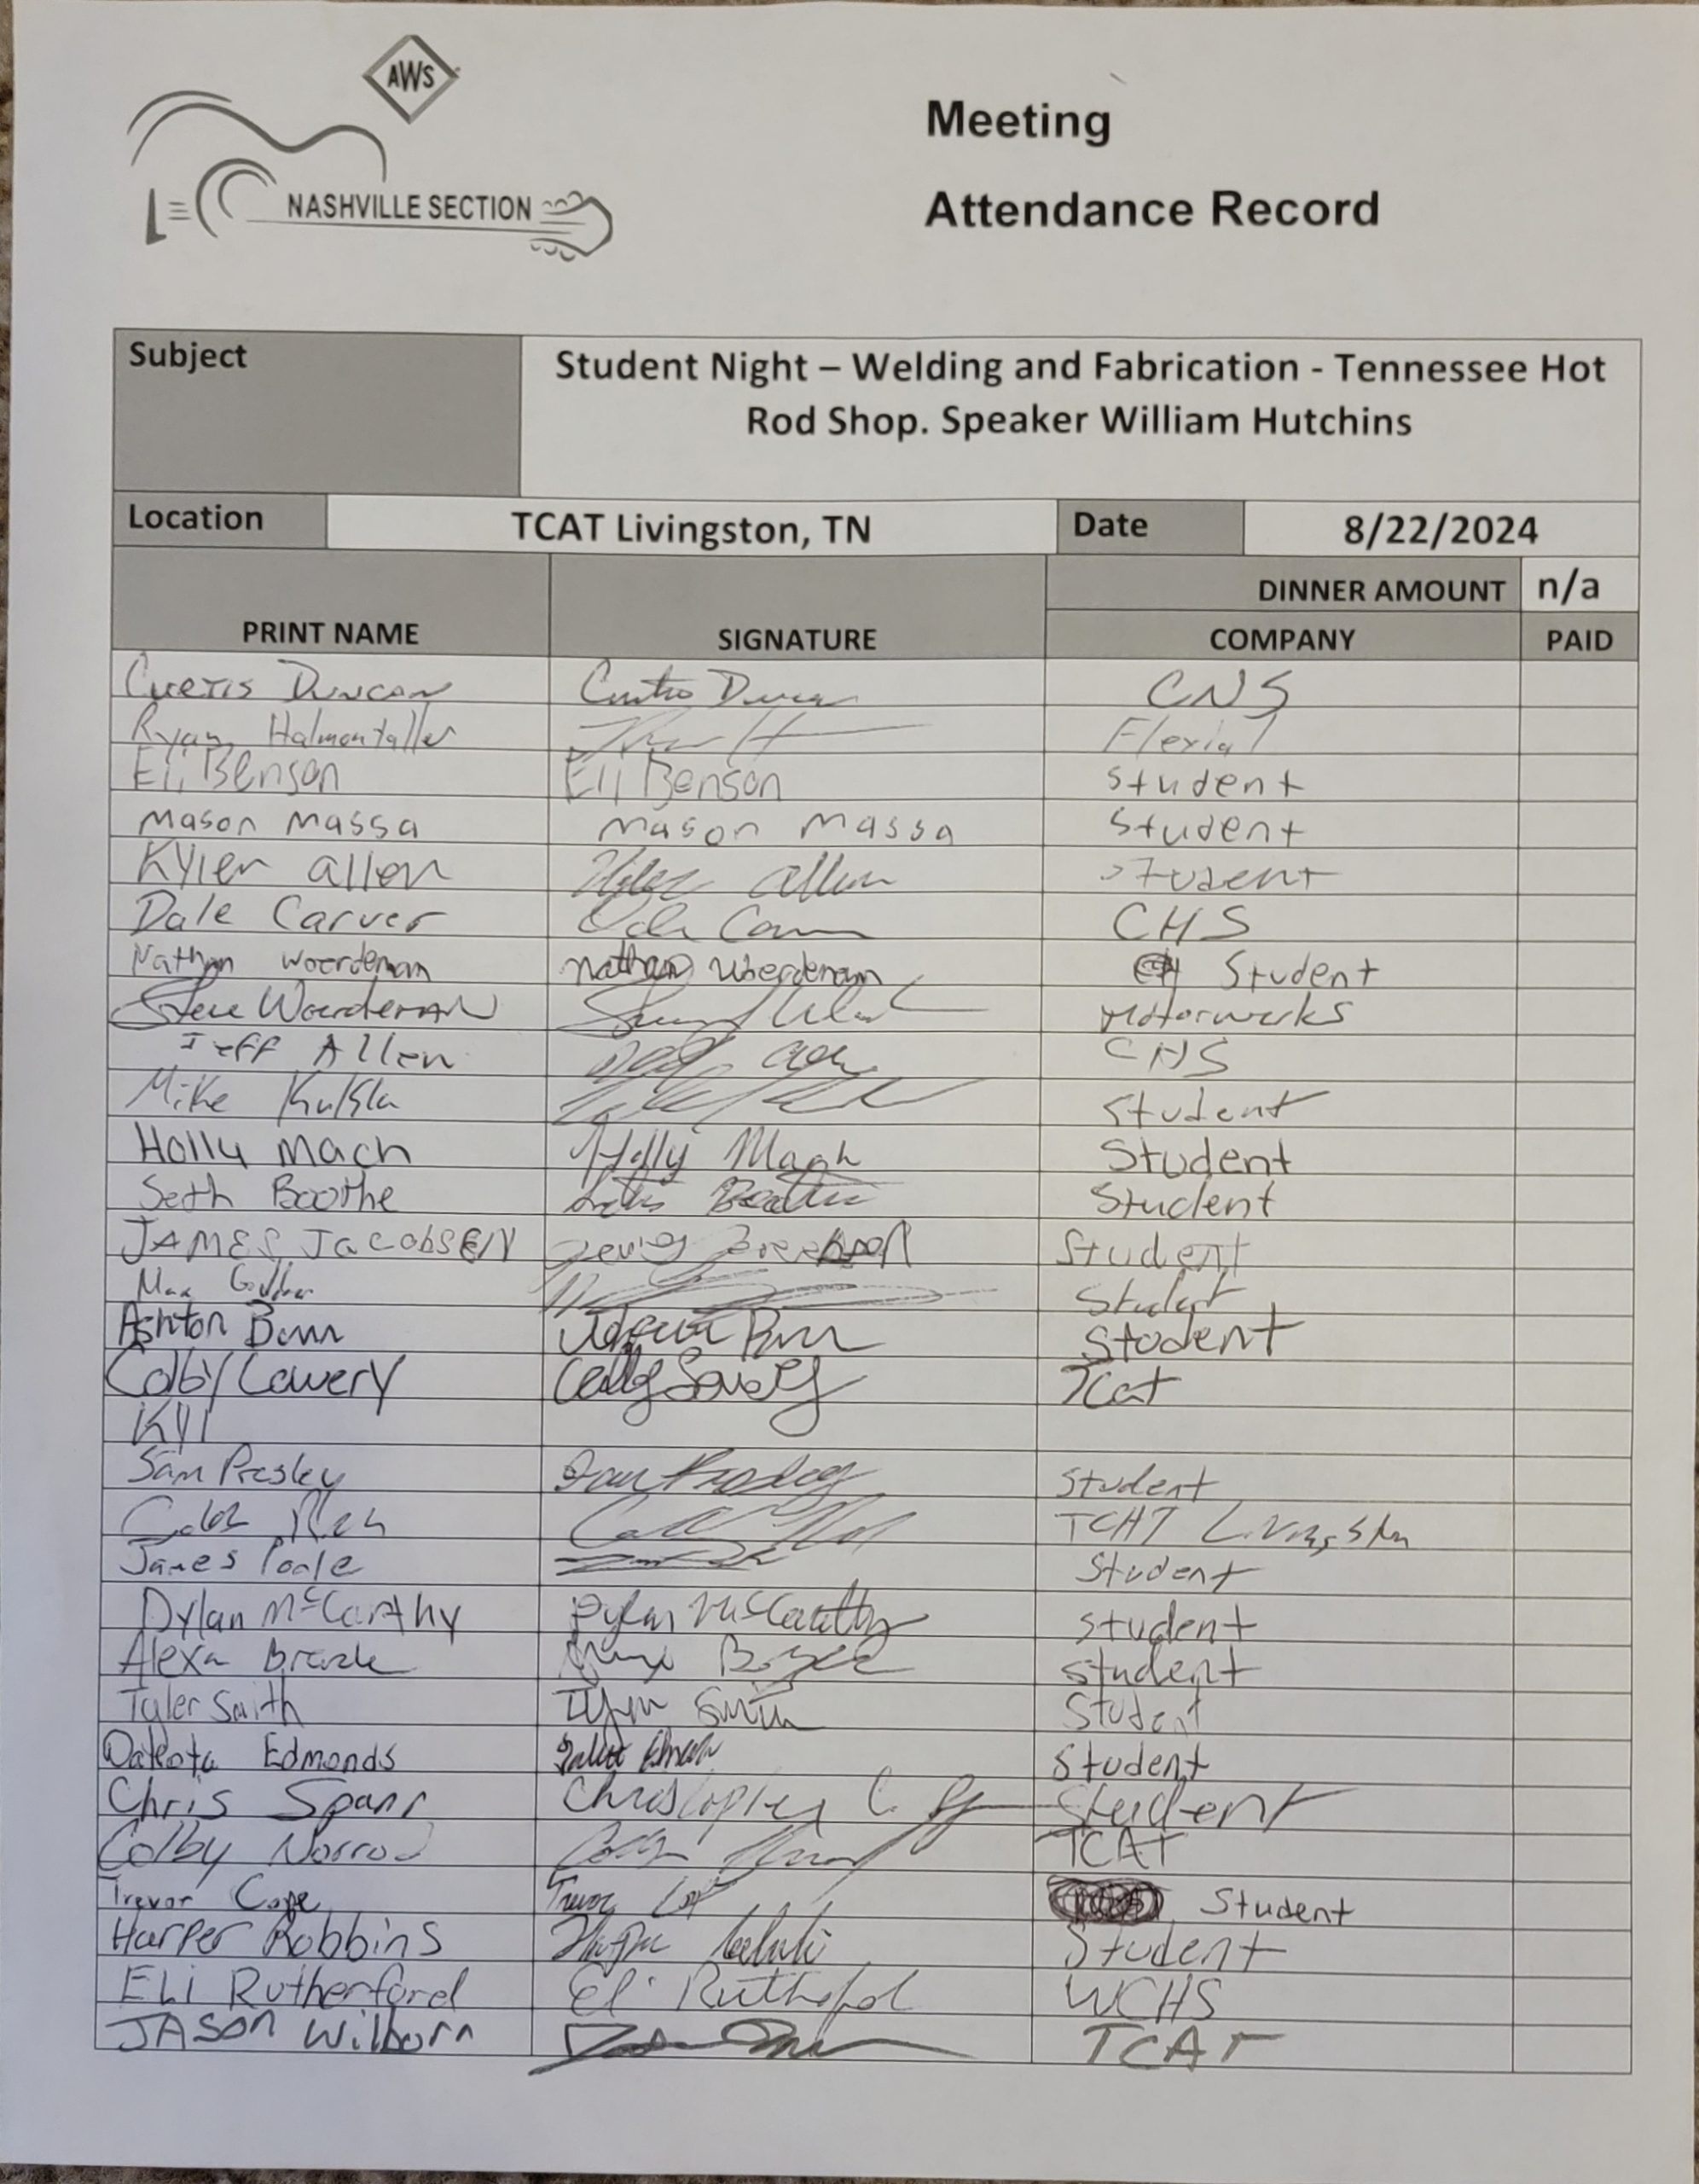 AWS
NASHVILLE SECTION
Meeting
Attendance Record
Subject
Student Night – Welding and Fabrication - Tennessee Hot
Rod Shop. Speaker William Hutchins
Location TCAT Livingston, TN Date 8/22/2024
DINNER AMOUNT n/a
PRINT NAME SIGNATURE COMPANY PAID
Curtis Duncan CNS
Ryan
Eli Benson Eli Benson Student
Mason Massa Mason Massa Student
Kyler Allen Allen Student
Dale Carver CHS
Nathan Woerdeman Nathan Woerdeman Student
Steve Woerdeman Motorwerks
Jeff Allen
Mike Student
Holly Mach Holly Mach Student
Seth Boothe Student
JAMES JacobsEN Student
Max Student
Ashton Student
Colby Lowery Tcat
Kyl
Sam Presley Sam Presley Student
TCAT Livingston
James Poole Student
Dylan McCarthy Dylan McCarthy Student
Alexa Student
Tyler Smith Tyler Smith Student
Dakota Edmonds Student
Chris Spann Christopher C. Student
Colby Norrod TCAT
Trevor Cope Trevor Student
Harper Robbins Student
ELi Rutherford Eli Rutherford WCHS
JASON Wilborn TCAT